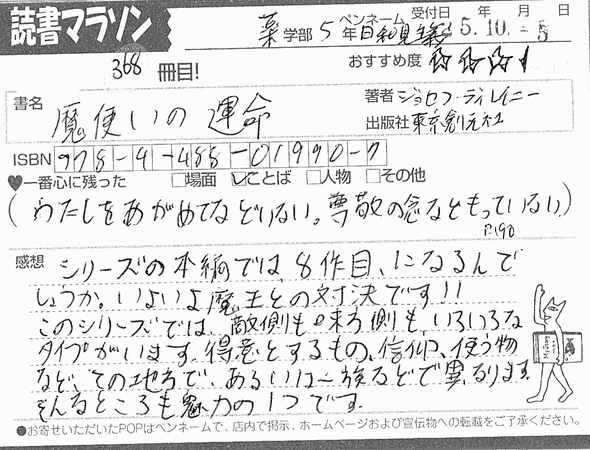 読書マラソン
368 冊目!
薬 学部 5 年 ペンネーム 日和見 受付日 年 月 日
5.10.-5
おすすめ度 ☆☆☆
書名 魔使いの運命
著者 ジョセフ・ディレイニー
出版社 東京創元社
ISBN 978-4-488-01990-7
♥一番心に残った □場面 ☑ことば □人物 □その他
(わたしをあがめてなどいない。尊敬の念などもっていない)
P.190
感想 シリーズの本編では、8作目、になるんで
しょうか。いよいよ魔王との対決です!!
このシリーズでは、敵側も味方側も、いろいろな
タイプがいます。得意とするもの、信仰、使う物
など、その地方で、あるいは一族などで異なります。
そんなところも魅力の1つです。
●お寄せいただいたPOPはペンネームで、店内で掲示、ホームページおよび宣伝物への転載をご了承ください。